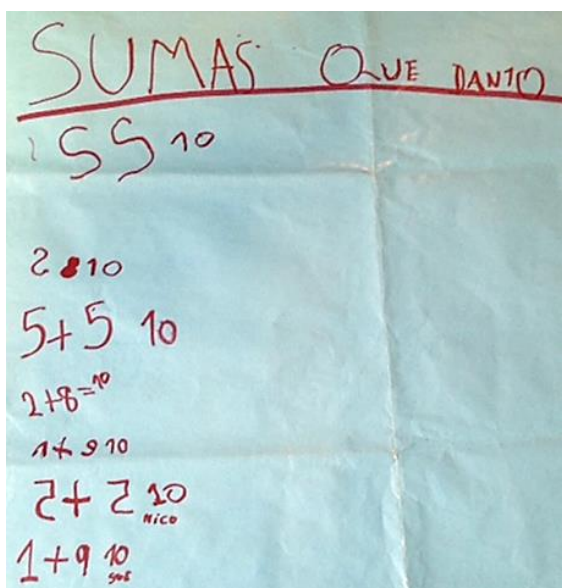 SUMAS QUE DAN10
55 10
2 8 10
5+5 10
2+8=10
1+9 10
2+2 10
Nico
1+9 10